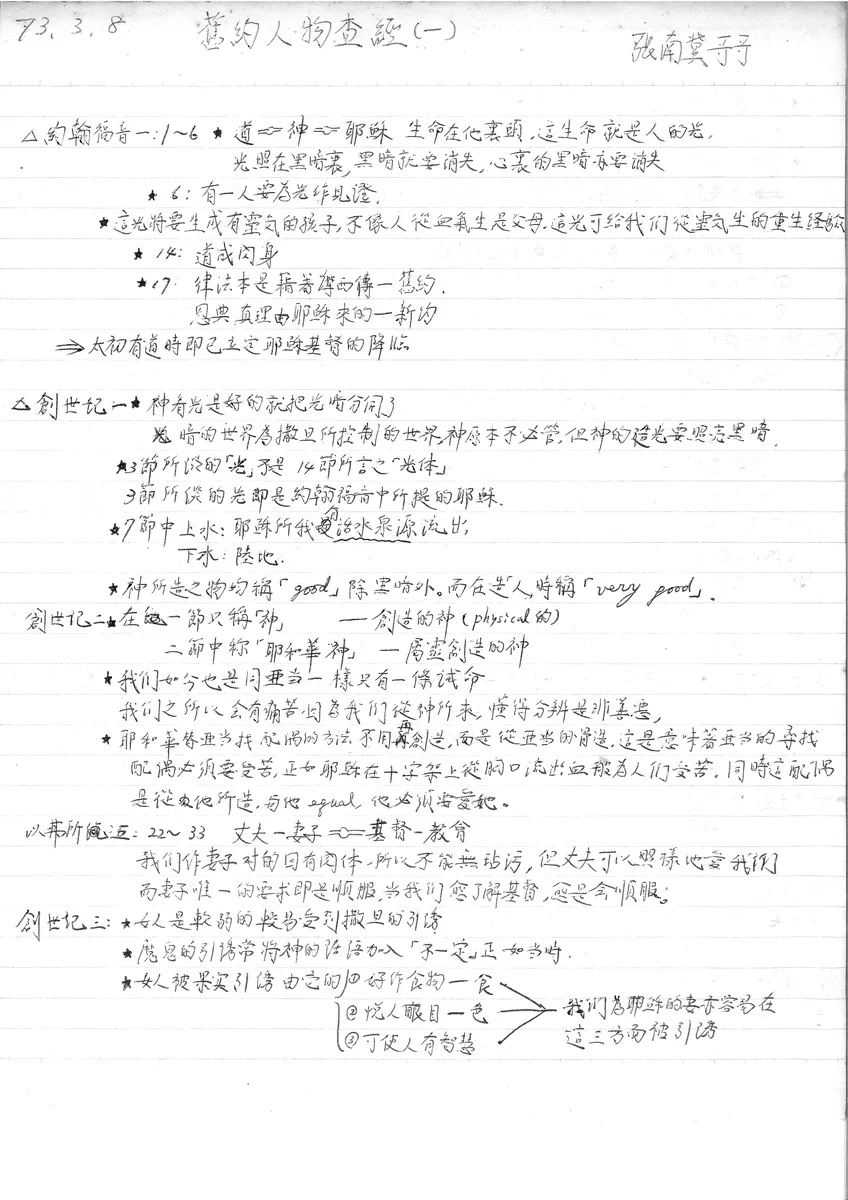 73.3.8 舊約人物查經(一) 張南冀哥哥
△約翰福音一:1~6 ★ 道⇔神⇔耶穌 生命在他裏頭,這生命就是人的光.
光照在黑暗裏,黑暗就要消失,心裏的黑暗亦要消失
★ 6:有一人要為光作見證.
★這光將要生成有靈氣的孩子,不像人從血氣生是父母.這光可給我们從靈氣生的重生經驗
★ 14: 道成肉身
★ 17: 律法本是藉著摩西傳—舊約.
恩典真理由耶穌來的—新約
⇒太初有道時即已立定耶穌基督的降臨
△創世紀一★神看光是好的就把光暗分開了
暗的世界為撒旦所控制的世界,神原本不必管,但神的這光要照亮黑暗.
★3節所談的「光」不是 14節所言之「光体」
3節所談的光即是約翰福音中所提的耶穌.
★7節中上水:耶穌所我有活水泉源流出
下水:陸地.
★神所造之物均稱「good」除黑暗外。而在造「人」時稱「very good」.
創世紀二★在一節只稱「神」 —創造的神(physical的)
二節中称「耶和華神」 —屬靈創造的神
★我们如今也是同亚当一樣只有一條誡命
我们之所以会有痛苦因為我们從神所來,懂得分辨是非善惡,
★耶和華替亚当找配偶的方法不用再創造,而是從亚当的骨造,這是意味著亚当的尋找
配偶必須要受苦,正如耶穌在十字架上從胸口流出血般為人们受苦。同時這配偶
是從他所造,与他 equal,他必須要愛她。
以弗所五:22~33 丈夫—妻子⇔基督—教會
我们作妻子对的因有肉体,所以不能無玷污,但丈夫可以照樣地愛我们
而妻子唯一的要求即是順服,当我们愈了解基督,愈是会順服。
創世紀三:★女人是軟弱的較易受到撒旦的引誘
★魔鬼的引誘常將神的話語加入「不一定」正如当時.
★女人被果实引誘由它的①好作食物—食
②悅人眼目—色
③可使人有智慧
我们為耶穌的妻亦容易在
這三方面被引誘